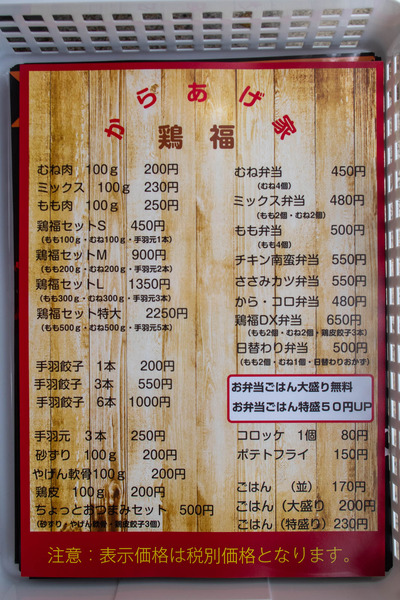 からあげ家
鶏福
むね肉 100g 200円
ミックス 100g 230円
もも肉 100g 250円
鶏福セットS 450円
(もも100g・むね100g・手羽元1本)
鶏福セットM 900円
(もも200g・むね200g・手羽元2本)
鶏福セットL 1350円
(もも300g・むね300g・手羽元3本)
鶏福セット特大 2250円
(もも500g・むね500g・手羽元5本)
手羽餃子 1本 200円
手羽餃子 3本 550円
手羽餃子 6本 1000円
手羽元 3本 250円
砂ずり 100g 200円
やげん軟骨100g 200円
鶏皮 100g 200円
ちょっとおつまみセット 500円
(砂ずり・やげん軟骨・鶏皮餃子3個)
むね弁当 450円
(むね4個)
ミックス弁当 480円
(もも2個・むね2個)
もも弁当 500円
(もも4個)
チキン南蛮弁当 550円
ささみカツ弁当 550円
から・コロ弁当 480円
鶏福DX弁当 650円
(もも2個・むね2個・鶏皮餃子3本)
日替わり弁当 500円
(もも2個・むね1個・日替わりおかず)
お弁当ごはん大盛り無料
お弁当ごはん特盛50円UP
コロッケ 1個 80円
ポテトフライ 150円
ごはん (並) 170円
ごはん (大盛り) 200円
ごはん (特盛り) 230円
注意:表示価格は税別価格となります。